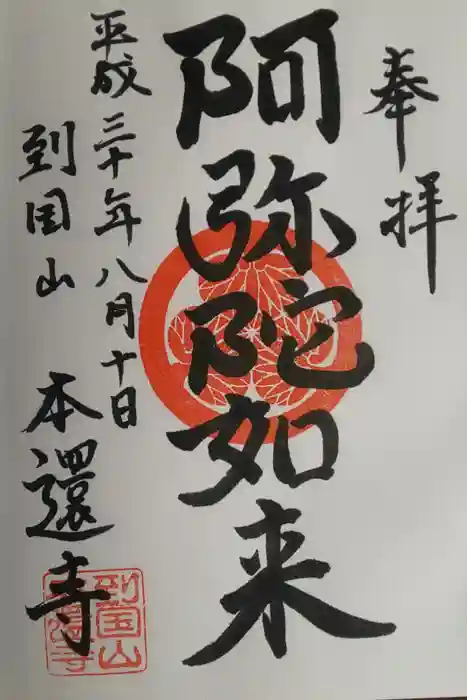 奉拝
阿弥陀如来
平成三十年八月十日
到国山
本還寺
到国山
本還寺